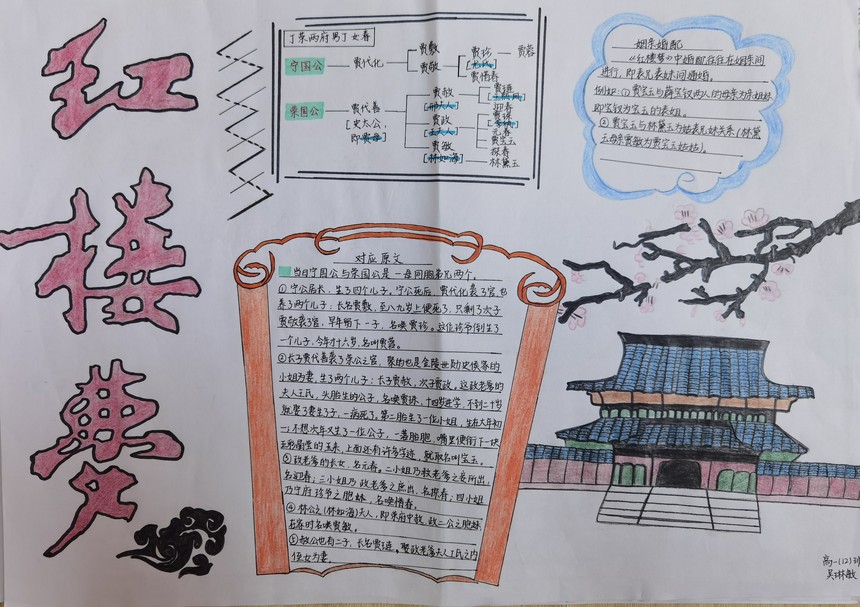 红楼梦
宁荣两府男丁女眷
宁国公
贾代化
贾敷
贾敬
贾珍
贾蓉
[尤氏]
贾惜春
荣国公
贾代善
[史太公,
即贾母]
贾赦
[邢夫人]
贾政
[王夫人]
贾敏
[林如海]
贾琏
迎春
贾珠
元春
贾宝玉
探春
林黛玉
姻亲婚配
《红楼梦》中婚配往往在姻亲间
进行,即表兄表妹间通婚。
例如:①贾宝玉与薛宝钗两人的母亲为亲姐妹
即宝钗为宝玉的表姐。
②贾宝玉与林黛玉为姑表兄妹关系(林黛
玉母亲贾敏为贾宝玉姑姑)。
对应原文
当日宁国公与荣国公是一母同胞弟兄两个。
①宁公居长,生了四个儿子。宁公死后,贾代化袭了官,也
养了两个儿子:长名贾敷,至八九岁上便死了,只剩了次子
贾敬袭了官,早年留下一子,名唤贾珍。这位珍爷倒生了
一个儿子,今年才十六岁,名叫贾蓉。
②长子贾代善袭了荣公之官,娶的也是金陵世勋史侯家的
小姐为妻,生了两个儿子:长子贾赦,次子贾政。这政老爹的
夫人王氏,头胎生的公子,名唤贾珠,十四岁进学,不到二十岁
就娶了妻生了子,一病死了。第二胎生了一位小姐,生在大年初
一;不想次年又生了一位公子,一落胎胞,嘴里便衔下一块
五彩晶莹的玉来,上面还有许多字迹,就取名叫宝玉。
③政老爹的长女,名元春。二小姐乃赦老爹之妾所出,
名迎春;三小姐乃政老爹之庶出,名探春;四小姐
乃宁府珍爷之胞妹,名唤惜春。
④林公之(林如海)夫人,即荣府中赦、政二公之胞妹
在家时名唤贾敏。
⑤赦公也有二子,长名贾琏。娶政老爹夫人王氏之内
侄女为妻。
高一(12)班
吴琳敏